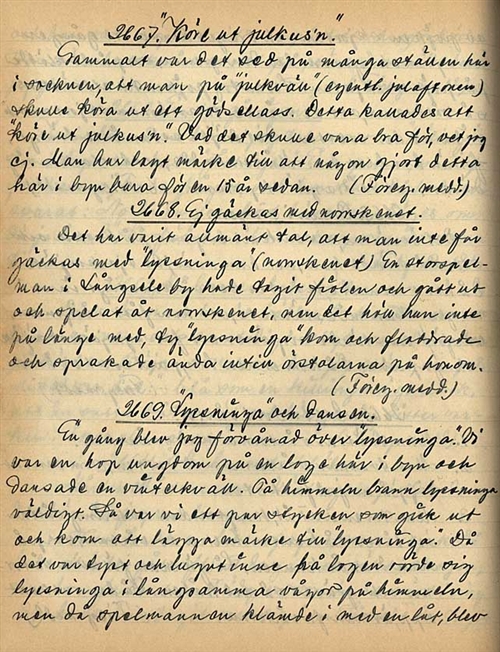 2667. "Köre ut julkus'n."
Gammalt var det sed på många ställen här
i socknen, att man på "julkväll" (egentl. julaftonen)
skulle köra ut ett gödsellass. Detta kallades att
"köre ut julkus'n". Vad det skulle vara bra för, vet jag
ej. Man har lagt märke till att någon gjort detta
här i byn bara för en 15 år sedan. (Föreg. medd.)
2668. Ej gäckas med norrskenet.
Det har varit allmänt tal, att man inte får
gäckas med "lysninga" (norrskenet) En storspel-
man i by hade tagit fiolen och gått ut
och spelat åt norrskenet, men det höll han inte
på länge med, ty "lysninga" kom och fladdrade
och sprakade ända intill on på honom.
(Föreg. medd.)
2669. "Lysninga" och dansen.
En gång blev jag förvånad över "lysninga". Vi
var en hop ungdom på en loge här i byn och
dansade en vinterkväll. På himmeln brann lysninga
väldigt. Så var vi ett par stycken som gick ut
och kom att lägga märke till "lysninga". Då
det var tyst och lugnt inne på logen rörde sig
lysninga i långsamma vågor på himmeln,
men då spelmannen klämde i med en låt, blev